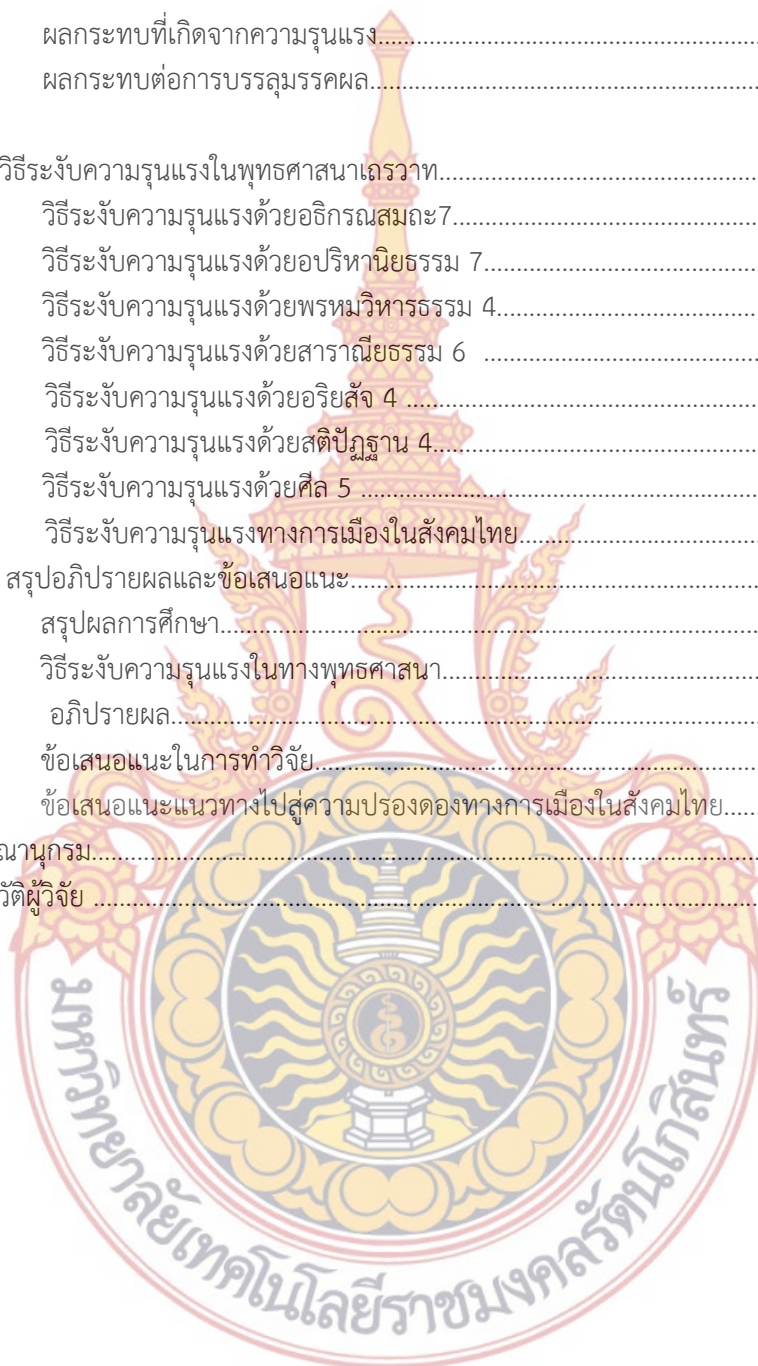 ผลกระทบที่เกิดจากความรุนแรง
ผลกระทบต่อการบรรลุมรรคผล
วิธีระงับความรุนแรงในพุทธศาสนาเถรวาท
วิธีระงับความรุนแรงด้วยอธิกรณสมถะ7
วิธีระงับความรุนแรงด้วยอปริหานิยธรรม 7
วิธีระงับความรุนแรงด้วยพรหมวิหารธรรม 4
วิธีระงับความรุนแรงด้วยสาราณียธรรม 6
วิธีระงับความรุนแรงด้วยอริยสัจ 4
วิธีระงับความรุนแรงด้วยสติปัฏฐาน 4
วิธีระงับความรุนแรงด้วยศีล 5
วิธีระงับความรุนแรงทางการเมืองในสังคมไทย
สรุปอภิปรายผลและข้อเสนอแนะ
สรุปผลการศึกษา
วิธีระงับความรุนแรงในทางพุทธศาสนา
อภิปรายผล
ข้อเสนอแนะในการทำวิจัย
ข้อเสนอแนะแนวทางไปสู่ความปรองดองทางการเมืองในสังคมไทย
ณานุกรม
วัติผู้วิจัย
มหาวิทยาลัยเทคโนโลยีราชมงคลรัตนโกสินทร์